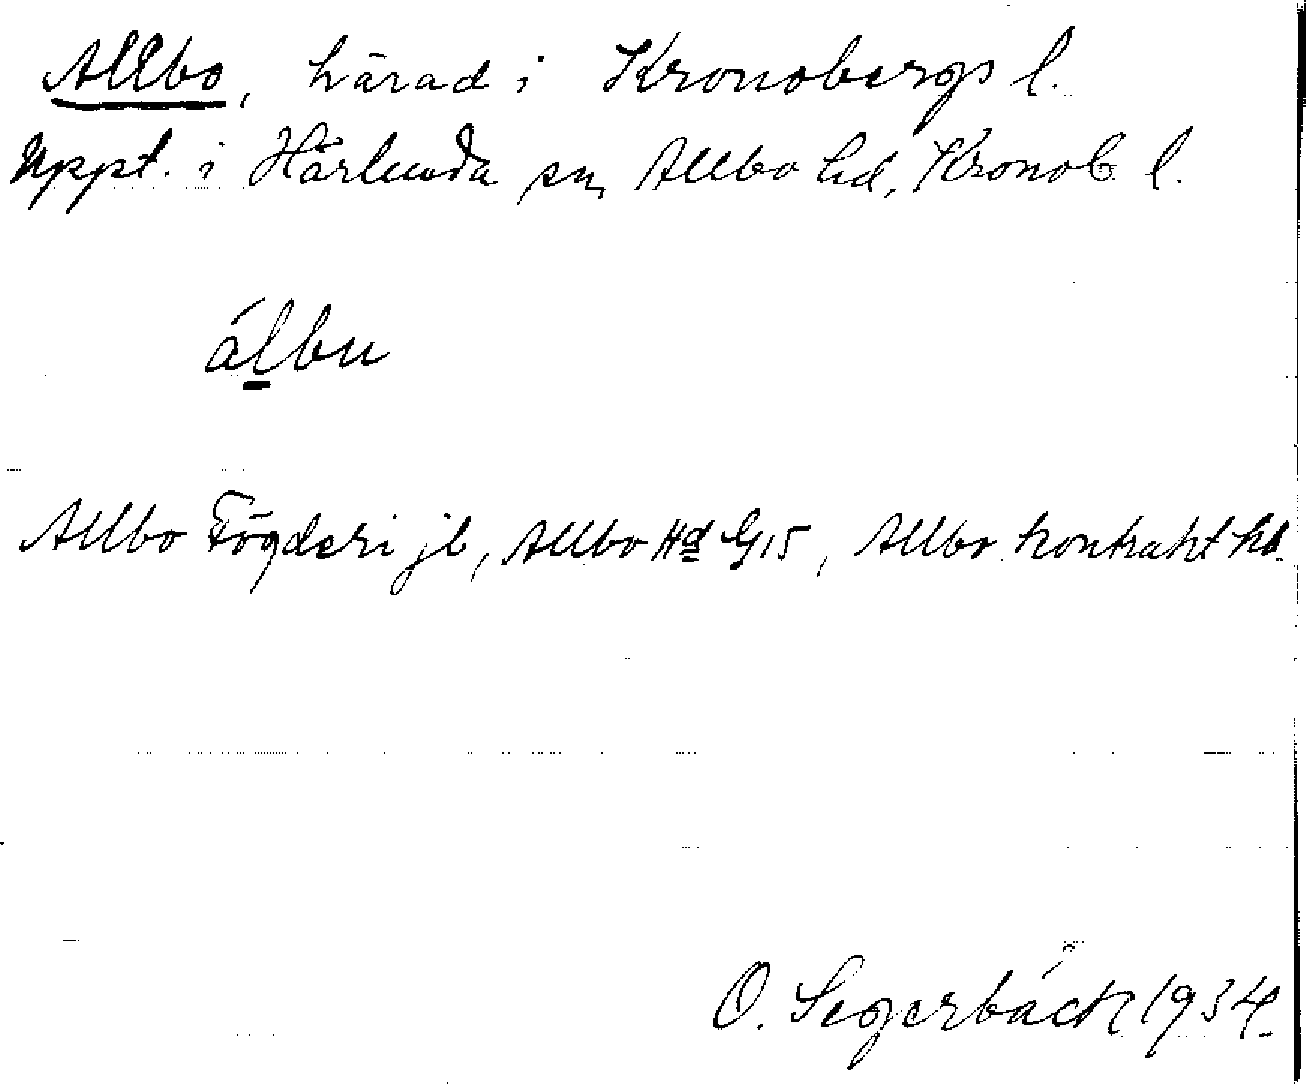 Allbo, härad i Kronobergs l.
Uppt. i Härlunda sn, Allbo hd, Kronob l.
álbu
Allbo Fögderi jb, Allbo Hd G15, Allbo kontrakt hd.
O. Segerbäck 1934.